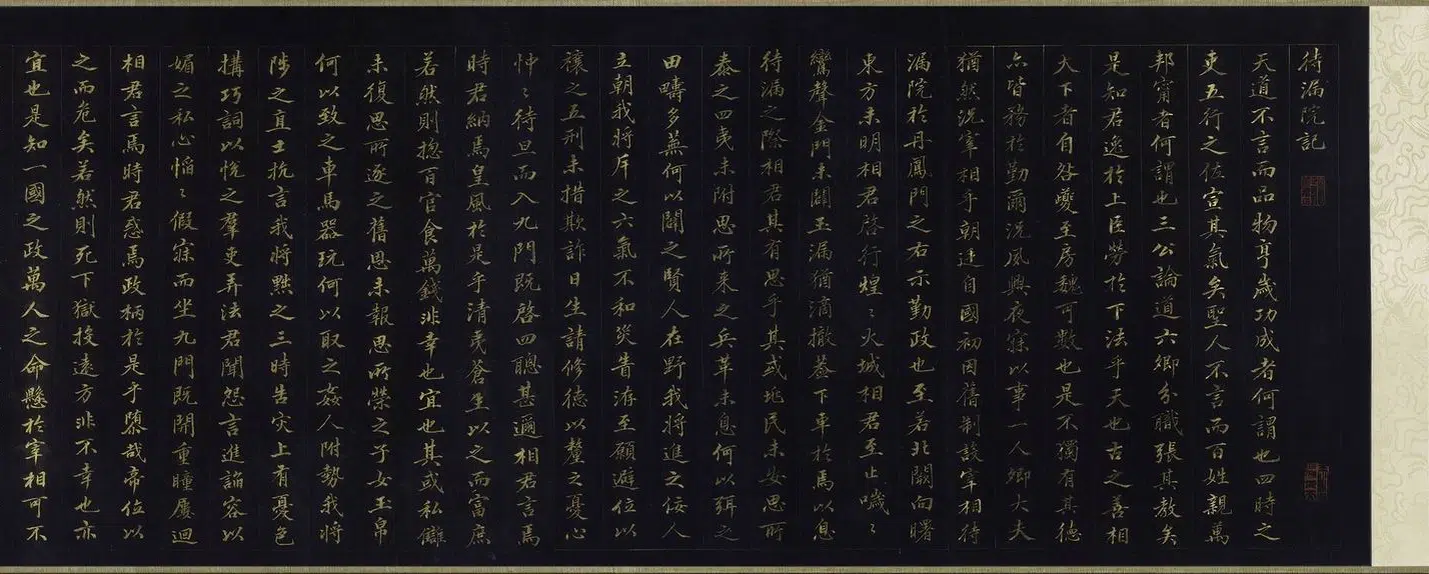 待漏院記
天道不言而品物亨歲功成者何謂也四時之
吏五行之佐宣其氣矣聖人不言而百姓親萬
邦甯者何謂也三公論道六卿分職張其教矣
是知君逸於上臣勞於下法乎天也古之善相
天下者自咎夔至房魏可數也是不獨有其德
亦皆務於勤爾況夙興夜寐以事一人卿大夫
猶然況宰相乎朝廷自國初因舊制設宰相待
漏院於丹鳳門之右示勤政也至若北闕向曙
東方未明相君啓行煌〻火城相君至止噦〻
鸞聲金門未闢玉漏猶滴撤蓋下車於焉以息
待漏之際相君其有思乎其或兆民未安思所
泰之四夷未附思所來之兵革未息何以弭之
田疇多蕪何以闢之賢人在野我將進之佞人
立朝我將斥之六氣不和災眚洊至願避位以
禳之五刑未措欺詐日生請修德以釐之憂心
忡〻待旦而入九門既啓四聰甚邇相君言焉
時君納焉皇風於是乎清夷蒼生以之而富庶
若然則捴百官食萬錢非幸也宜也其或私讎
未復思所逐之舊恩未報思所榮之子女玉帛
何以致之車馬器玩何以取之姦人附勢我將
陟之直士抗言我將黜之三時告灾上有憂色
搆巧詞以悅之羣吏弄法君聞怨言進諂容以
媚之私心慆〻假寐而坐九門既開重瞳屢迴
相君言焉時君惑焉政柄於是乎隳哉帝位以
之而危矣若然則死下獄投遠方非不幸也亦
宜也是知一國之政萬人之命懸於宰相可不